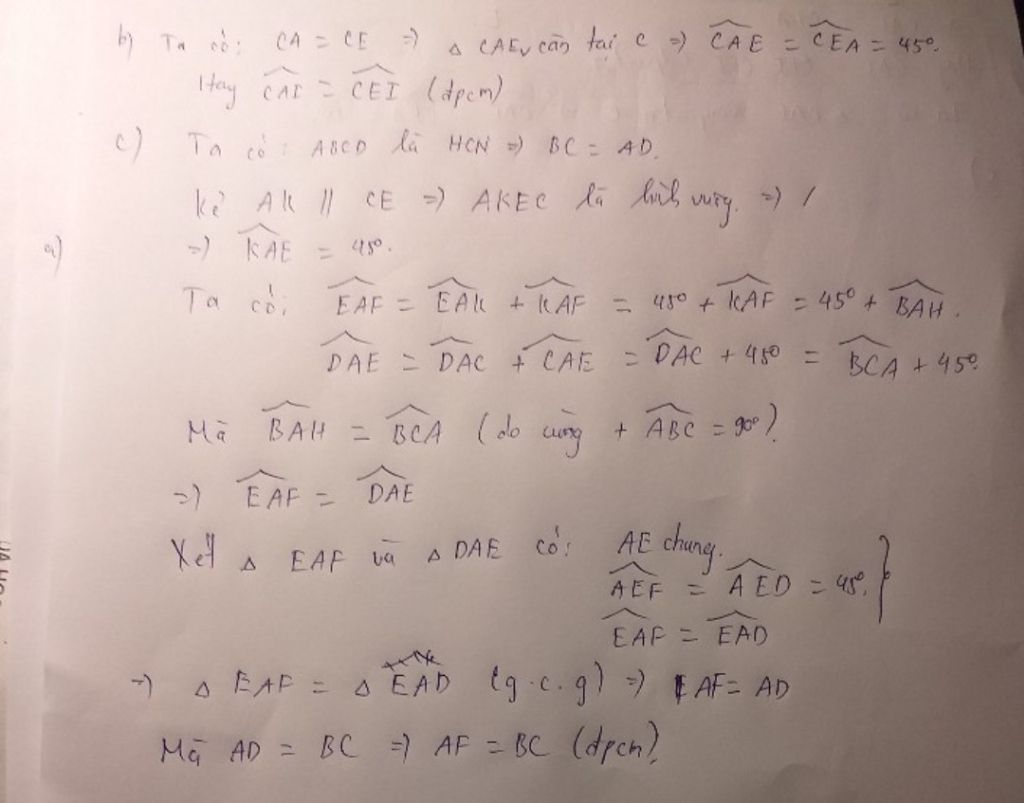 b) Ta có: CA = CE => △ CAE v cân tại C => CAE = CEA = 45°.
Hay CAI = CEI (đpcm)
c) Ta có: ABCD là HCN => BC = AD.
Kẻ AK // CE => AKEC là hình vuông. =>
a)
=> KAE = 45°.
Ta có: EAF = EAK + KAF = 45° + KAF = 45° + BAH.
DAE = DAC + CAE = DAC + 45° = BCA + 45°.
Mà BAH = BCA (do cùng + ABC = 90°)
=> EAF = DAE
Xét △ EAF và △ DAE có: AE chung.
AEF = AED = 45°.
EAF = EAD
=> △ EAF = △ EAD (g.c.g) => AF = AD
Mà AD = BC => AF = BC (đpcm)